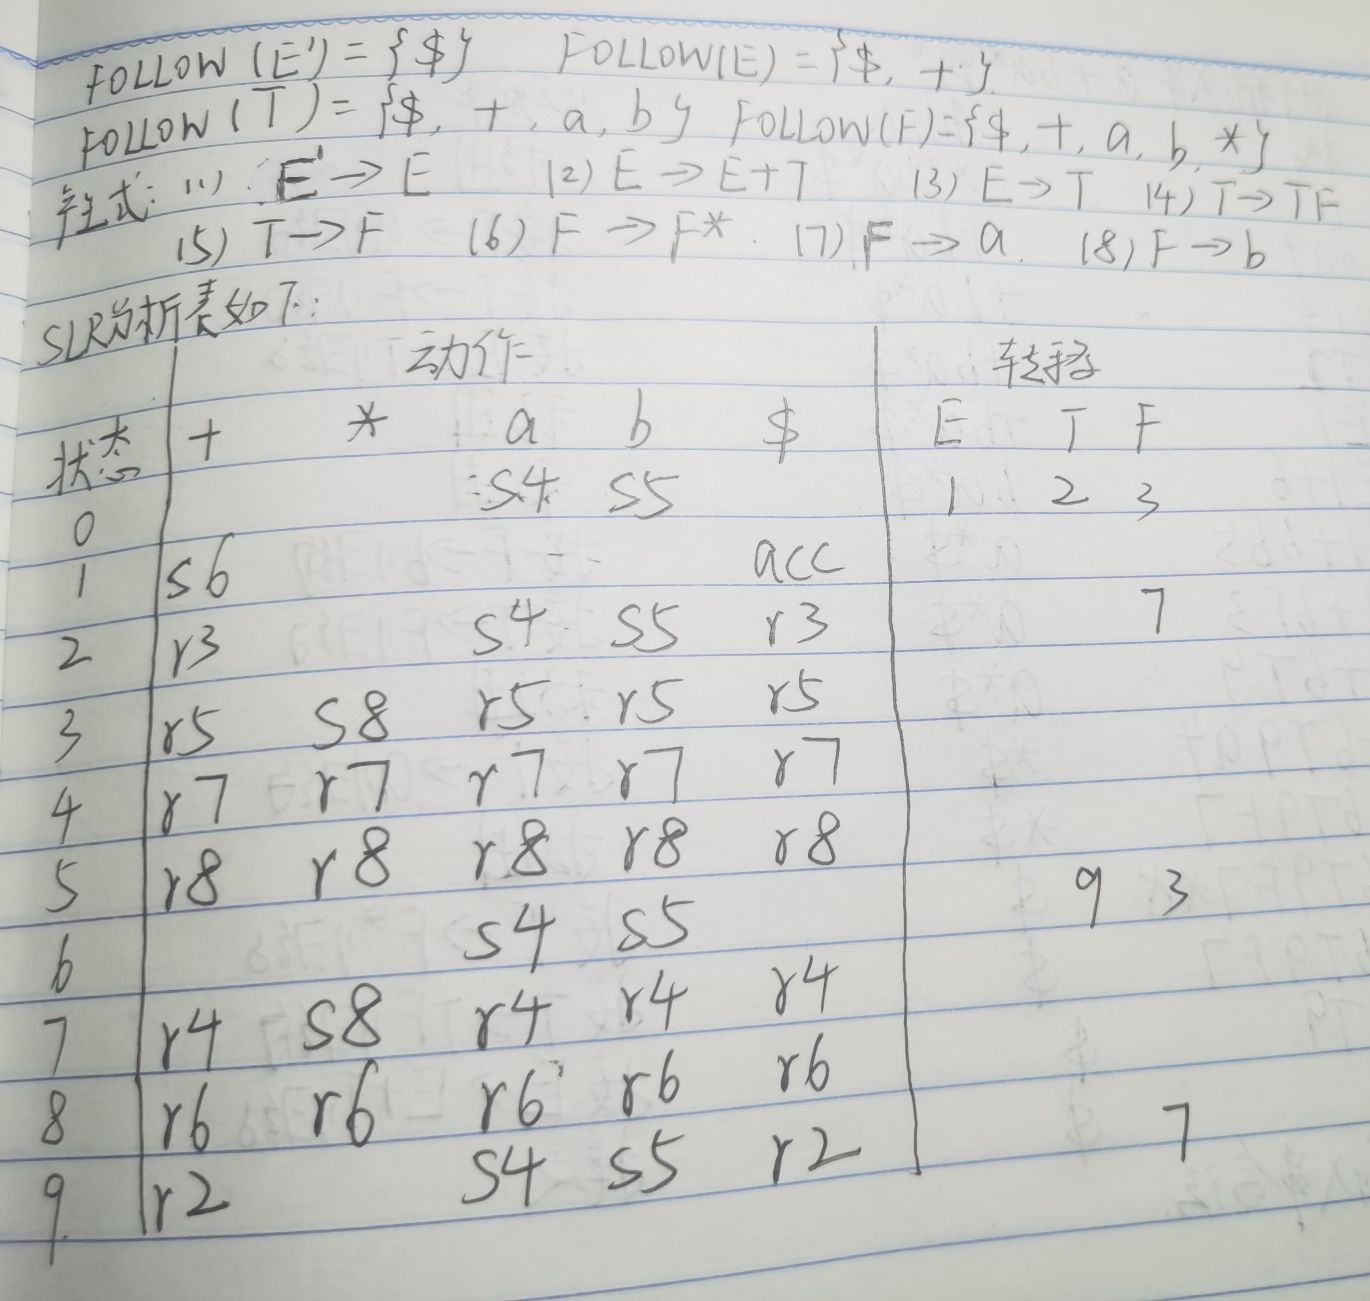 FOLLOW(E')={$} FOLLOW(E)={$,+}
FOLLOW(T)={$,+,a,b} FOLLOW(F)={$,+,a,b,*}
产生式: (1) E'→E (2) E→E+T (3) E→T (4) T→TF
(5) T→F (6) F→F* (7) F→a (8) F→b
SLR分析表如下:
动作 转移
状态 + * a b $ E T F
0 s4 s5 1 2 3
1 s6 acc
2 r3 s4 s5 r3 7
3 r5 s8 r5 r5 r5
4 r7 r7 r7 r7 r7
5 r8 r8 r8 r8 r8
6 s4 s5 9 3
7 r4 s8 r4 r4 r4
8 r6 r6 r6 r6 r6
9 r2 s4 s5 r2 7